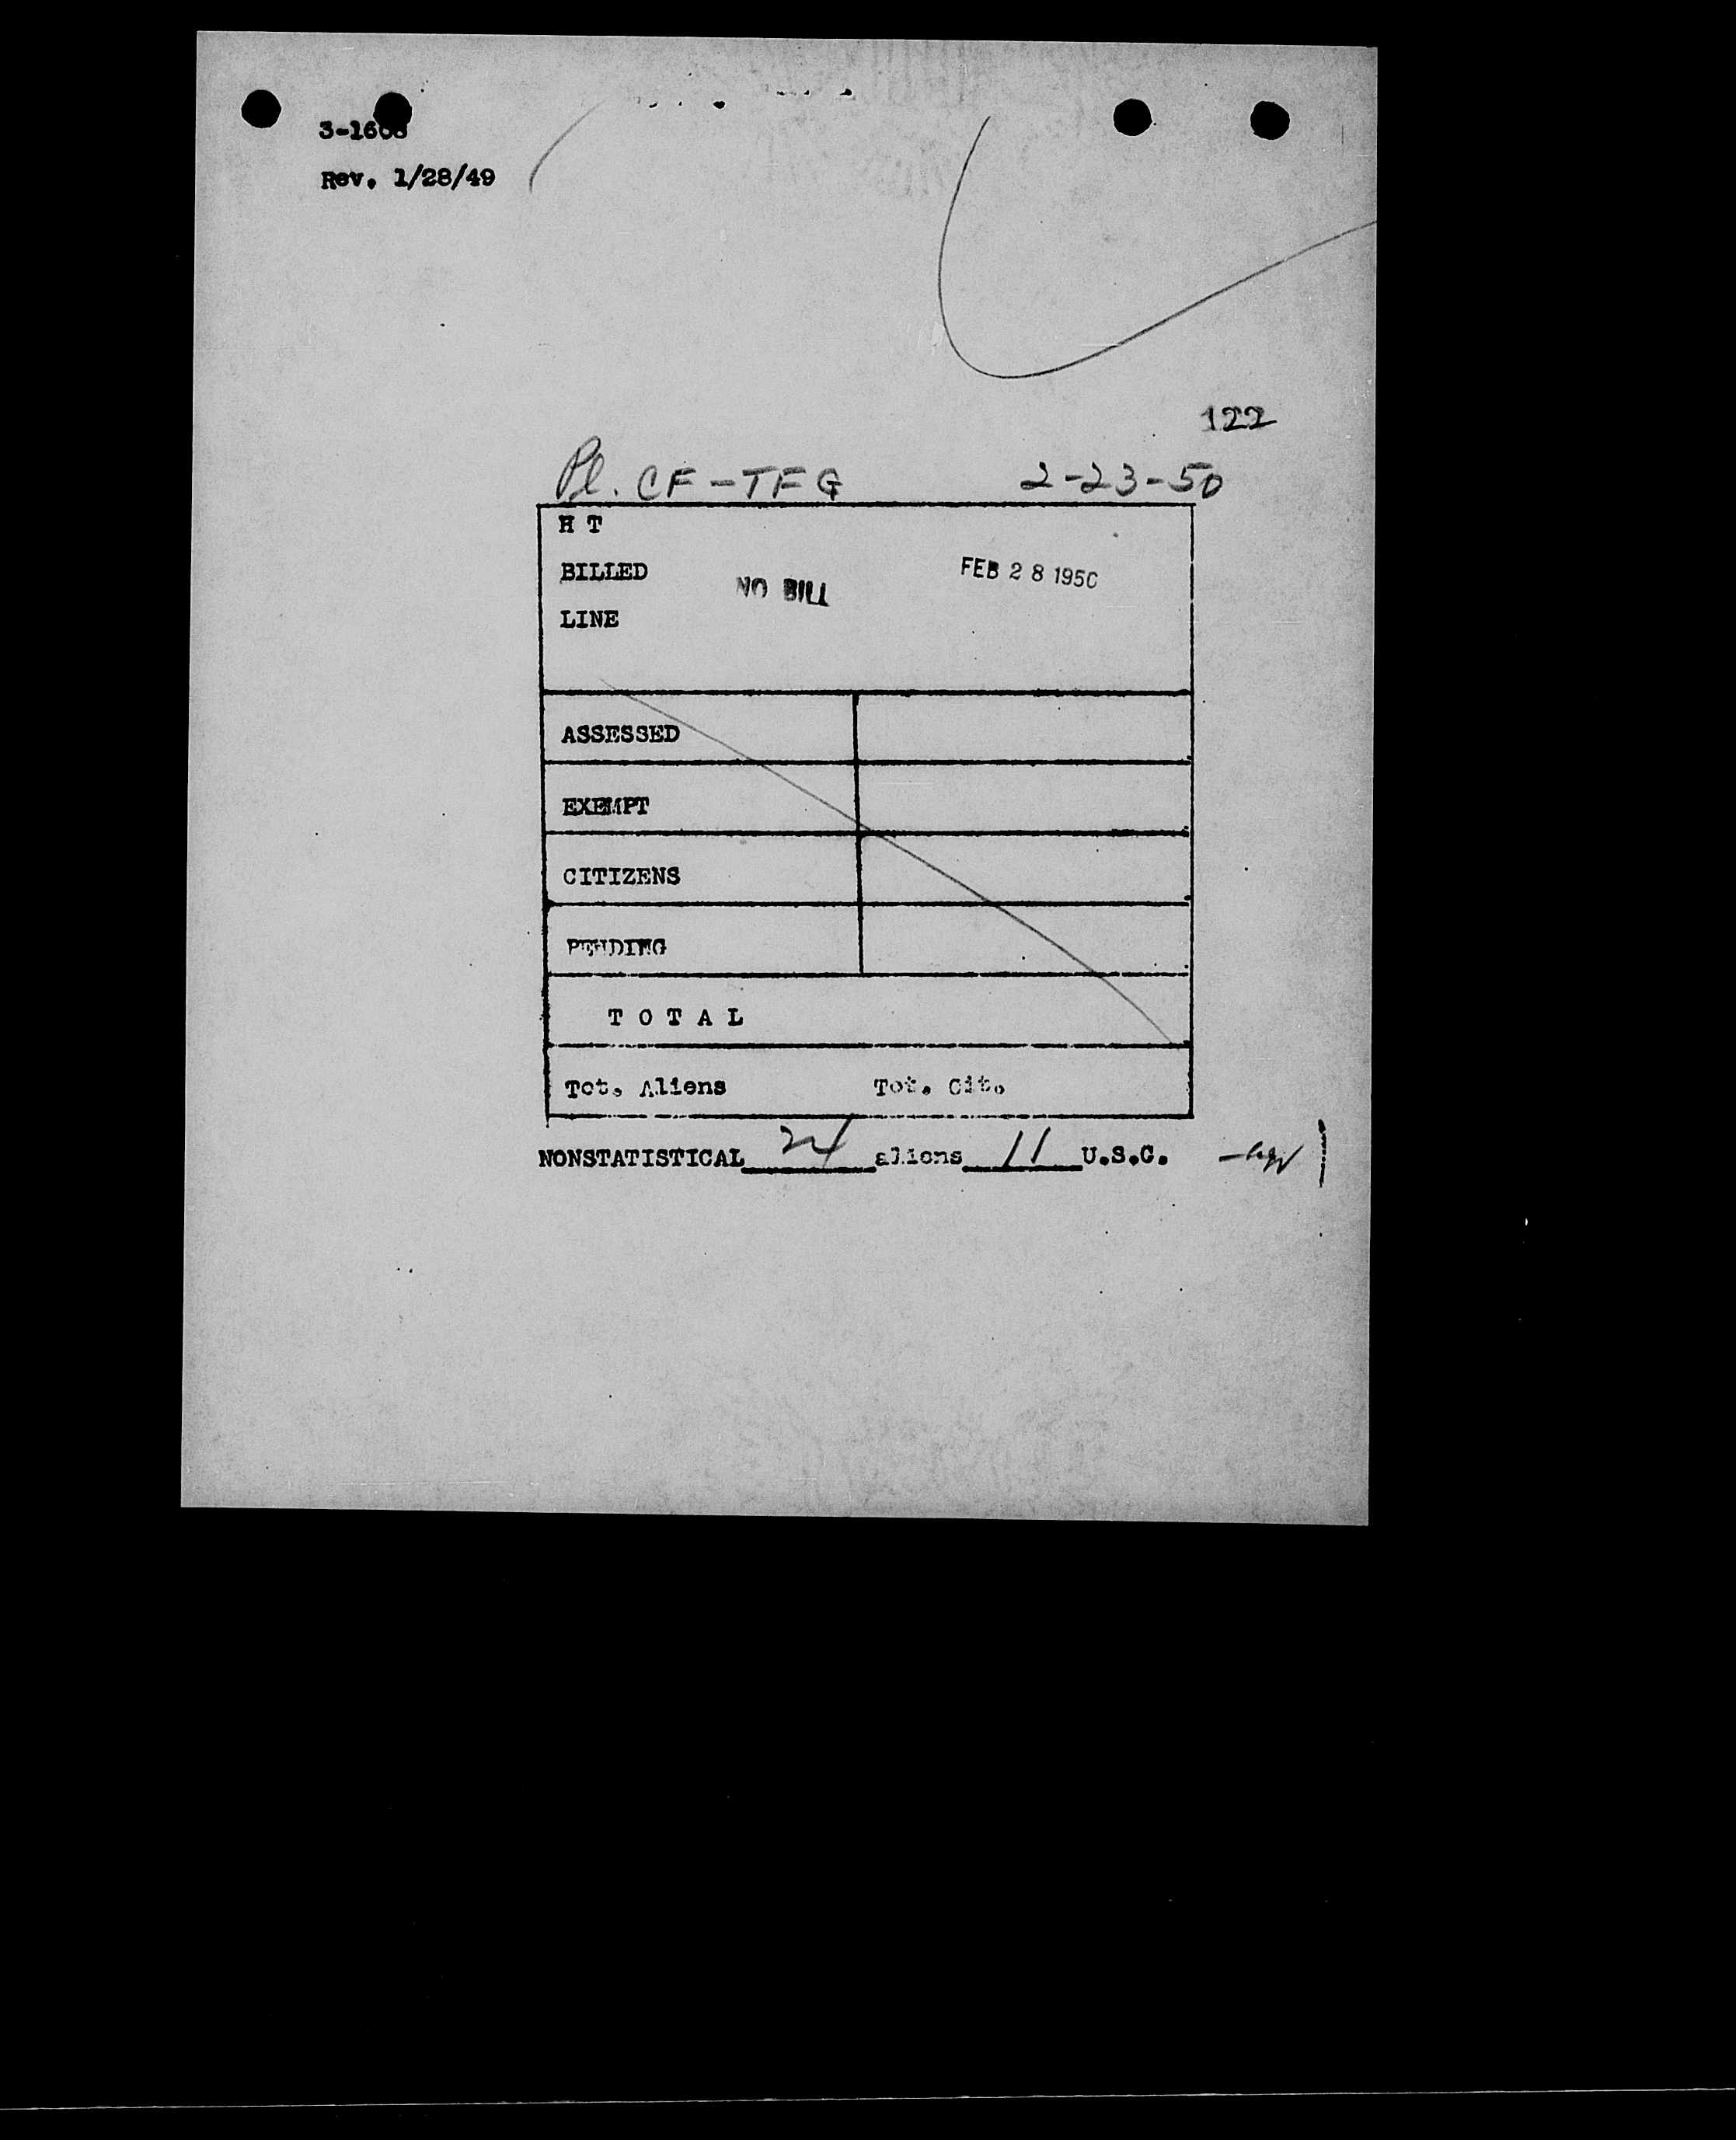 3-1608
Rev. 1/28/49
122
Pl. CF-TFG 2-23-50
H T
BILLED NO BILL FEB 28 1950
LINE
ASSESSED
EXEMPT
CITIZENS
PENDING
T O T A L
Tot. Aliens Tot. Cit.
NONSTATISTICAL 24 aliens 11 U.S.C.